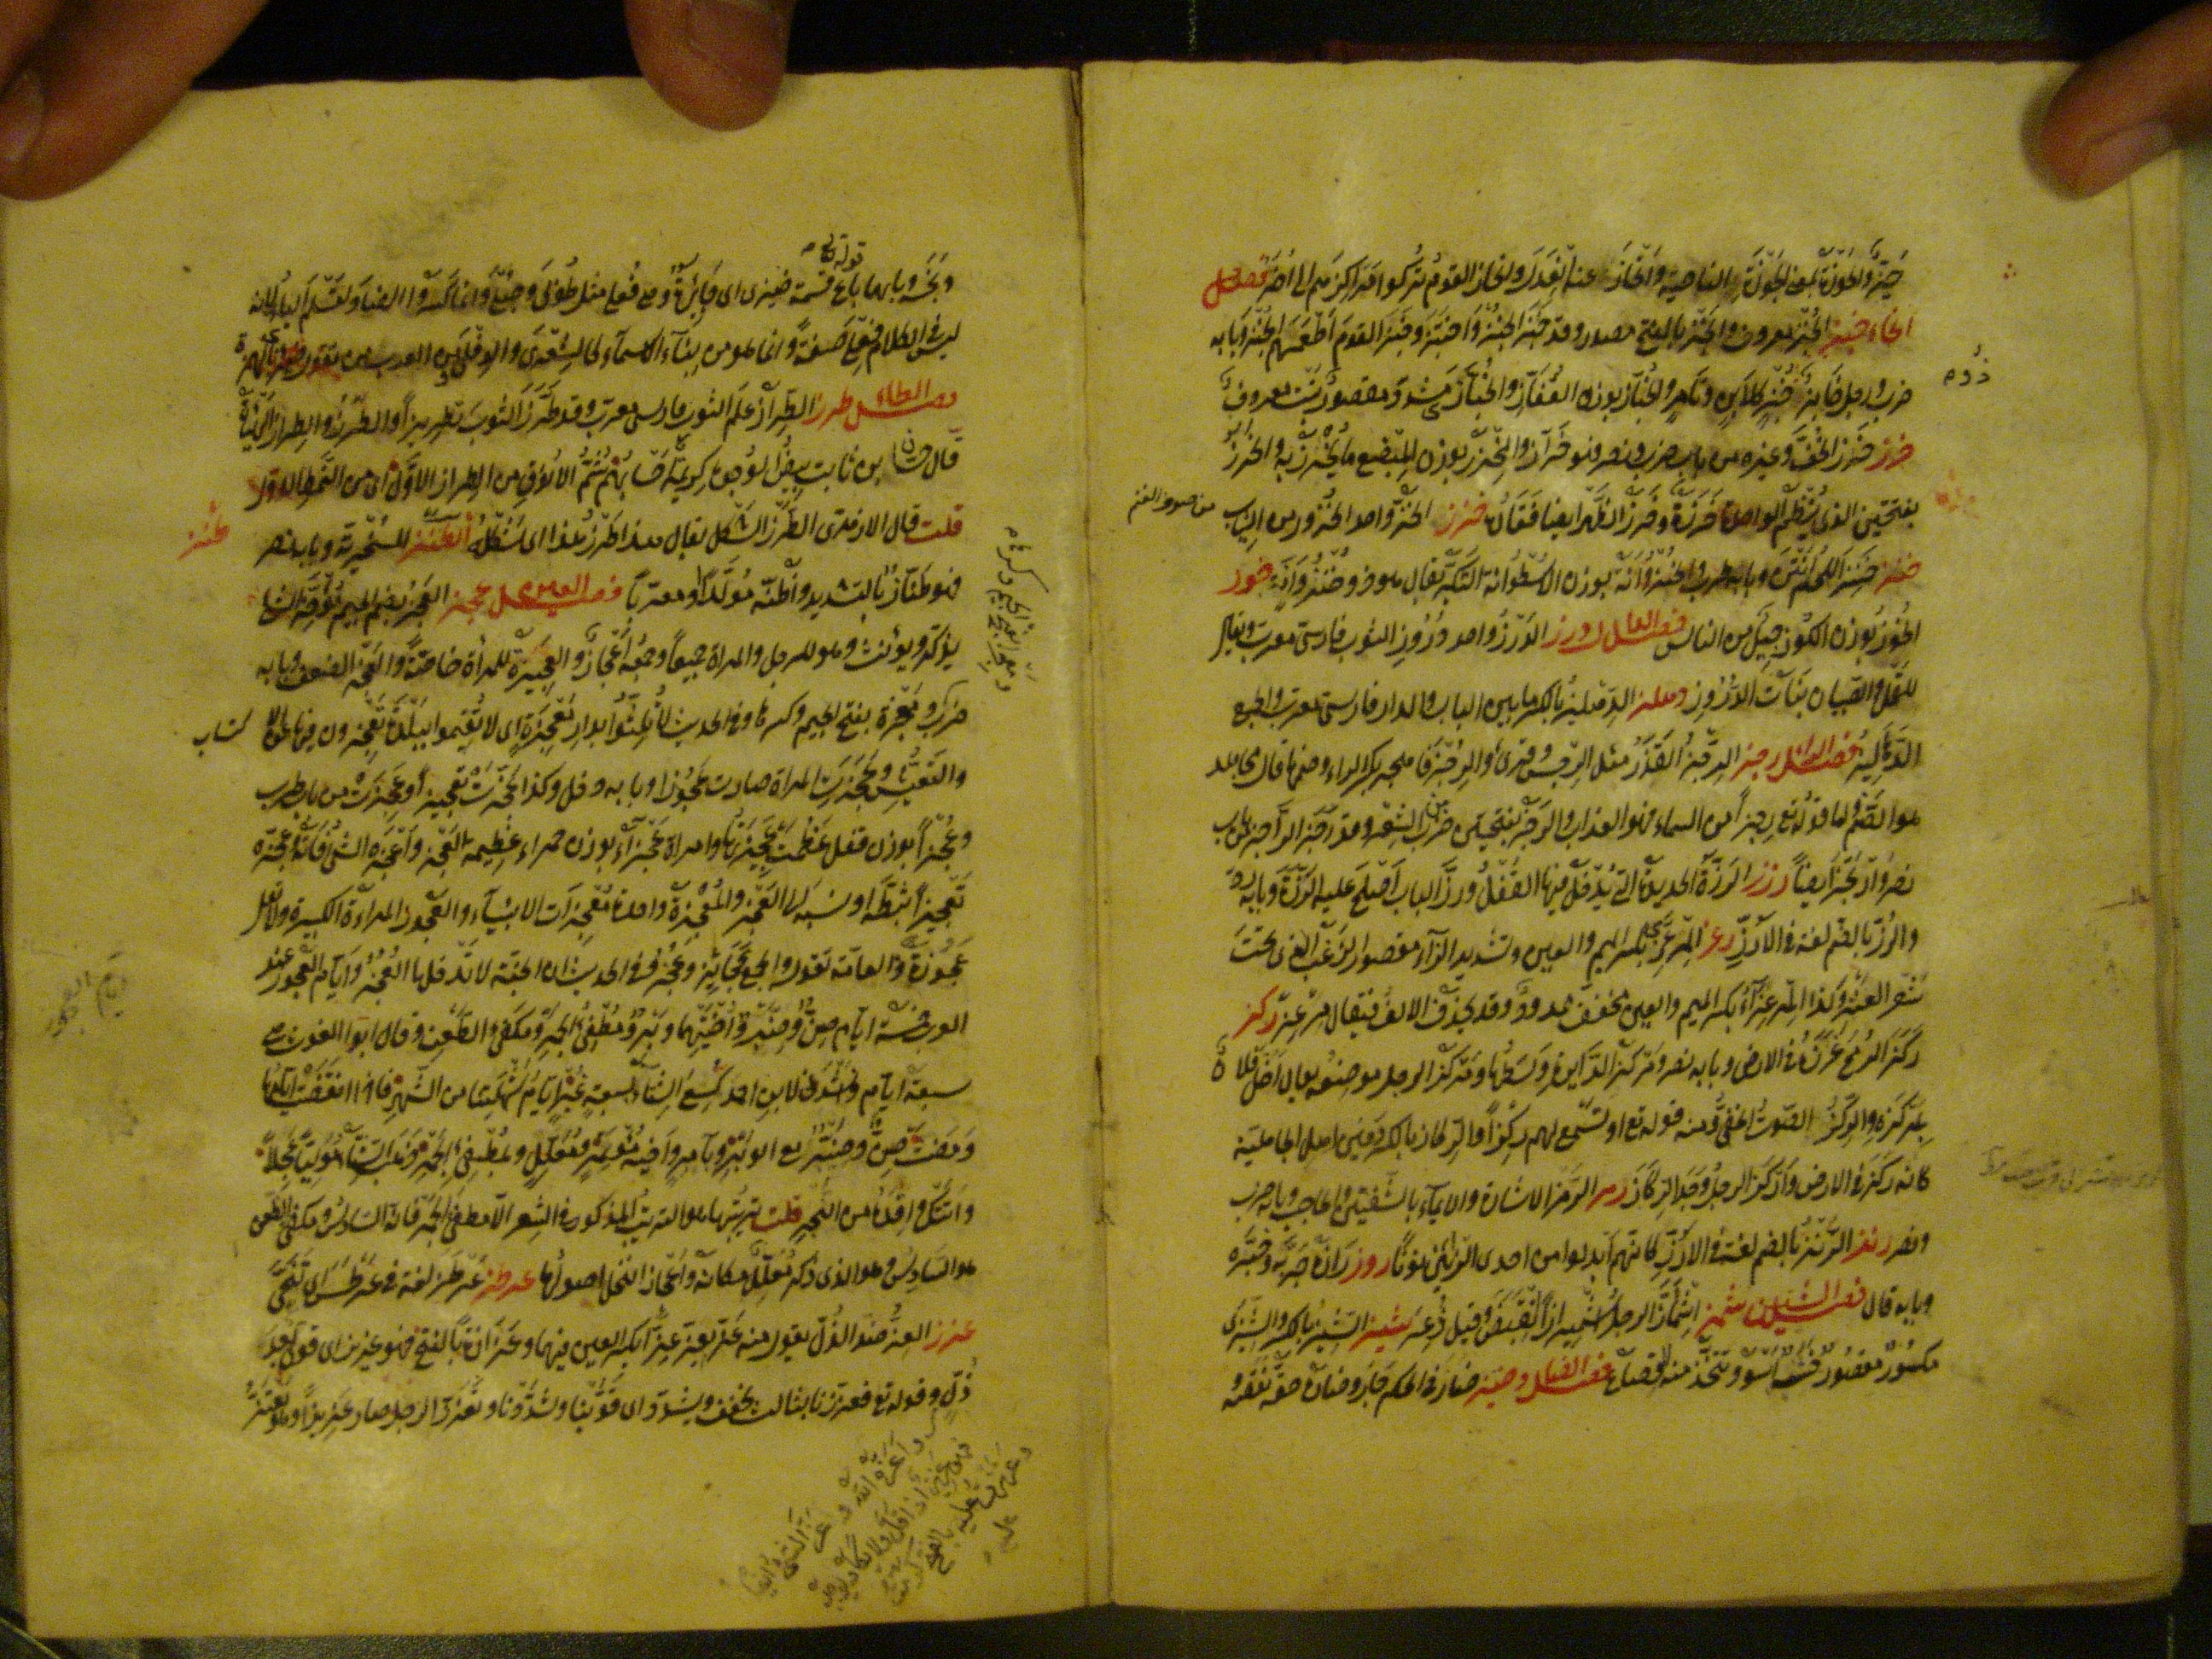 حَيِّزٌ والحَوْزَة بمعنى الحَوْزَة الناحية وانحاز عنه انعدل وانحاز القوم تركوا مركزهم الى آخر فصل
الخاء خبز الخُبْز معروف والخَبْز بالفتح مصدر وقد خبز الخُبْز واختبزه وخبز القوم اطعمهم الخبز وبابه
ضرب ورجل خابز ذو خبز كلابن وتامر والخُبّاز بوزن القُفّاز والخُبّازى مشدد مقصور نبت معروف
خرز خَرَزَ الخُفّ وغيره من باب ضرب ونصر فهو خرّاز والمِخْرَز بوزن المِبْضَع ما يُخْرَز به والخَرَز
بفتحتين الذى يُنظم الواحدة خَرَزَة وخَرَز الظهر ايضا فَقَاره خزز الخزّ واحد الخُزُوز من الثياب
خنز خَنِزَ اللحم اَنْتَنَ وبابه طرب والخُنْزُوانة بوزن الاسطوانة التكبر يقال هو ذو خُنْزُوانة خوز
الخُوز بوزن الكُوز جيل من الناس فصل الدال درز الدَرْز واحد دُرُوز الثوب فارسى معرب ويقال
للقمل والصئبان بنات الدُرُوز دهلز الدِهْليز بالكسر ما بين الباب والدار فارسى معرب والجمع
الدَهاليز فصل الراء رجز الرِجْز القَذَر مثل الرِجْس وقرئ والرجز فاهجر بكسر الراء وضمها قال مجاهد
هو الصنم واما قوله تع رجزا من السماء فهو العذاب والرَجَز بفتحتين ضرب من الشعر وقد رجز الراجز من باب
نصر وارتجز ايضا رزز الرَزّة الحديدة التى يُدْخَل فيها القُفْل ورَزّ الباب اصلح عليه الرَزّة وبابه ردّ
والرُزّ بالضم لغة فى الارز رعز المِرْعِزَّى بكسر الميم والعين وتشديد الزاء مقصور الزَغَب الذى تحت
شعر العنز وكذا المِرْعِزَاء بكسر الميم والعين مخفف ممدود وقد يحذف الالف فيقال مِرْعِزّ ركز
رَكَزَ الرمح غرزه فى الارض وبابه نصر ومركز الدائرة وسطها ومركز الرجل موضعه يقال اخلّ فلان
بمركزه والرِكْز الصوت الخفىّ ومنه قوله تع او تسمع لهم رِكْزًا والرِكاز بالكسر دفين اهل الجاهلية
كانه ركز فى الارض واركز الرجل وجد الركاز رمز الرمز الاشارة والايماء بالشفتين والحاجب وبابه ضرب
ونصر رنز الرُنْز بالضم لغة فى الارز كانهم ابدلوا من احدى الزائين نونا روز رازه جرّبه وخبره
وبابه قال فصل الشين شمز اشمأزّ الرجل اشمئزازا انقبض وقيل ذُعِر شيز الشيز بالكسر والشيزى
مكسور مقصور خشب اسود تتخذ منه القصاع فصل الضاد ضيز ضاز فى الحكم جار وضازه حقه نقصه
ذوم
من صوف الغنم
وبخسه وبابهما باع قوله تع قسمة ضيزى اى جائرة وهى فُعْلى مثل طُوبَى وحُبْلَى وانما كسروا الضاد لتسلم الياء لانه
ليس فى الكلام فِعْلى صفة وانما هو من بناء الاسماء كالشِعْرَى والدِفْلَى ومن العرب من يقول ضئزى بالهمزة
فصل الطاء طرز الطِراز عَلَم الثوب فارسى معرب وقد طَرَّز الثوب تطريزا والطِرز والطِراز الهيئة
قال حسان بن ثابت بيض الوجوه كريمة احسابهم شُمّ الانوف من الطراز الاوّل اى من النمط الاول
قلت قال الازهرى الطَرْز الشكل يقال هذا طَرْز هذا اى شكله الطنز السخرية وبابه نصر
فهو طَنّاز بالتشديد واظنه مولّدا او معربا فصل العين عجز العَجُز بضم الجيم مؤخّر الشئ
يذكّر ويؤنّث وهو للرجل والمراة جميعا وجمعه اَعْجاز والعَجِيزة للمراة خاصة والعَجْز الضعف وبابه
ضرب ومَعْجزة بفتح الجيم وكسرها وفى الحديث لا تلثّوا بدار مَعْجَزَة اى لا تقيموا ببلدة تعجزون فيها عن الاكتساب
والتعيّش وعَجَزَت المراة صارت عَجُوزا وبابه دخل وكذا عَجّزت تعجيزا وعَجِزَت من باب طرب
وعُجْزا بوزن قفل عظمت عَجيزتها وامراة عَجْزاء بوزن حمراء عظيمة العَجُز واعجزه الشئ فاته وعجّزه
تعجيزا ثبّطه او نسبه الى العَجْز والمُعْجِزة واحدة مُعْجِزات الانبياء والعجوز المراة الكبيرة ولا تقل
عجوزة والعامة تقوله والجمع عَجائز وعُجُز وفى الحديث ان الجنة لا تدخلها العُجُز وايام العجوز عند
العرب خمسة ايام صِنّ وصِنَّبْر واُخَيّهما وَبْر ومُطْفِئ الجمر ومُكفئ الظُعُن وقال ابو الغوث هى
سبعة ايام وانشد لابن احمر كُسِع الشتاء بسبعة غُبْر ايام شهلتنا من الشهر فاذا انقضت ايامها
ومضت صِنّ وصِنّبر مع الوَبْر وبآمر واخيه مُؤْتَمِر ومُعَلّل وبمُطْفِئ الجمر ذهب الشتاء مولّيا عجلا
واتتك واقدة من النجر قلت ترتيبها هو الترتيب المذكور فى الشعر الا مطفئ الجمر فانه السادس ومكفئ الظعن
هو السابع والذى ذكر مُعَلّل مكانه واعجاز النخل اصولها عرطز عَرْطَزَ لغة فى عَرْطَسَ اى تنحّى
عزز العِزّ ضد الذُلّ يقول منه عَزّ يَعِزّ عِزّا بكسر العين فيهما وعَزازة بالفتح فهو عزيز اى قوى بعد
ذُلّ وقوله تع فعزّزنا بثالث يخفف ويشدد اى قوّينا وشدّدنا وتعزّز الرجل صار عزيزا وهو يعتزّ
طنز